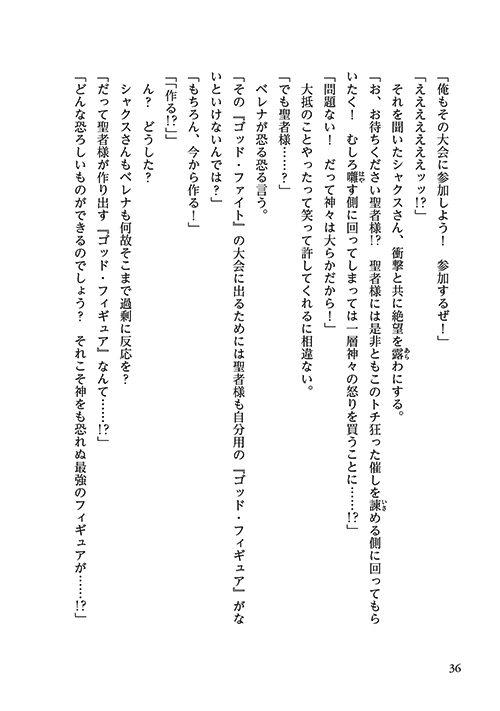 「俺もその大会に参加しよう！　参加するぜ！」
「えええええええッッ!?」
それを聞いたシャクスさん、衝撃と共に絶望を露わにする。
「お、お待ちください聖者様!?　聖者様には是非ともこのトチ狂った催しを諫める側に回ってもら
いたく！　むしろ囃す側に回ってしまっては一層神々の怒りを買うことに……!?」
「問題ない！　だって神々は大らかだから！」
大抵のことやったって笑って許してくれるに相違ない。
「でも聖者様……？」
ベレナが恐る恐る言う。
「その『ゴッド・ファイト』の大会に出るためには聖者様も自分用の『ゴッド・フィギュア』がな
いといけないんでは？」
「もちろん、今から作る！」
「「作る!?」」
ん？　どうした？
シャクスさんもベレナも何故そこまで過剰に反応を？
「だって聖者様が作り出す『ゴッド・フィギュア』なんて……!?」
「どんな恐ろしいものができるのでしょう？　それこそ神をも恐れぬ最強のフィギュアが……!?」
36